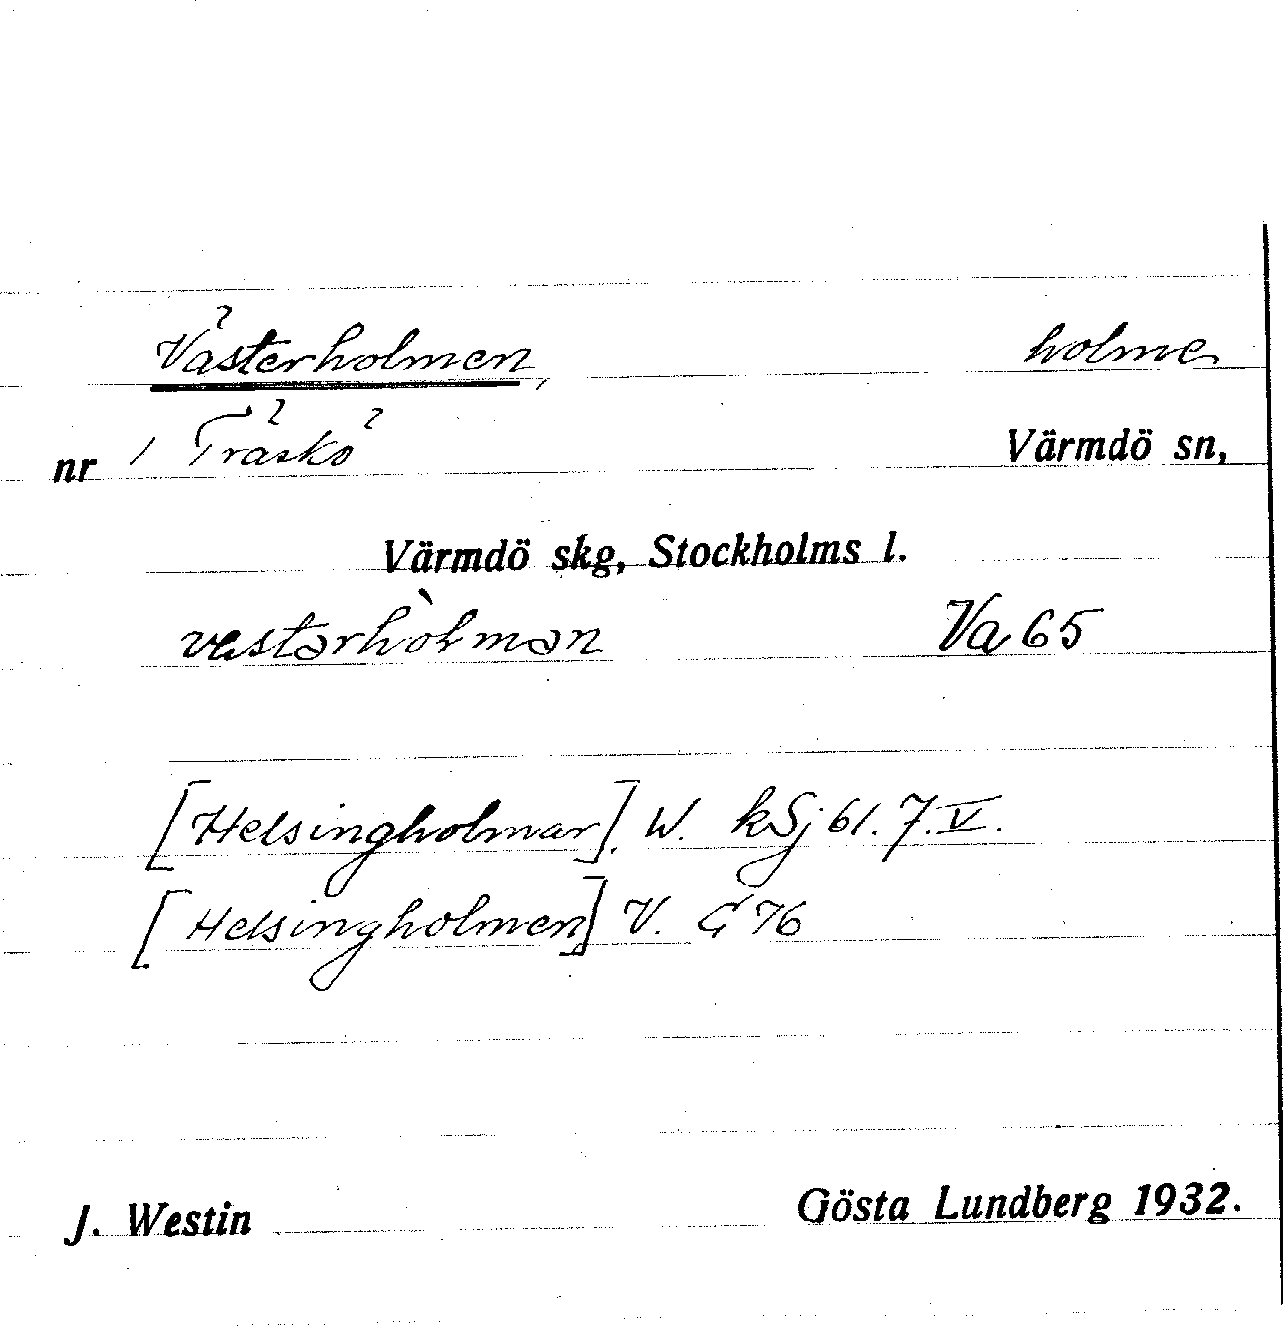 Västerholmen, holme
nr 1 Träskö Värmdö sn,
Värmdö skg, Stockholms l.
västərhòlmən Va 65
[Helsingholmar]. W. kSj 61. 7. V.
[Helsingholmen] V. G 76
J. Westin Gösta Lundberg 1932.